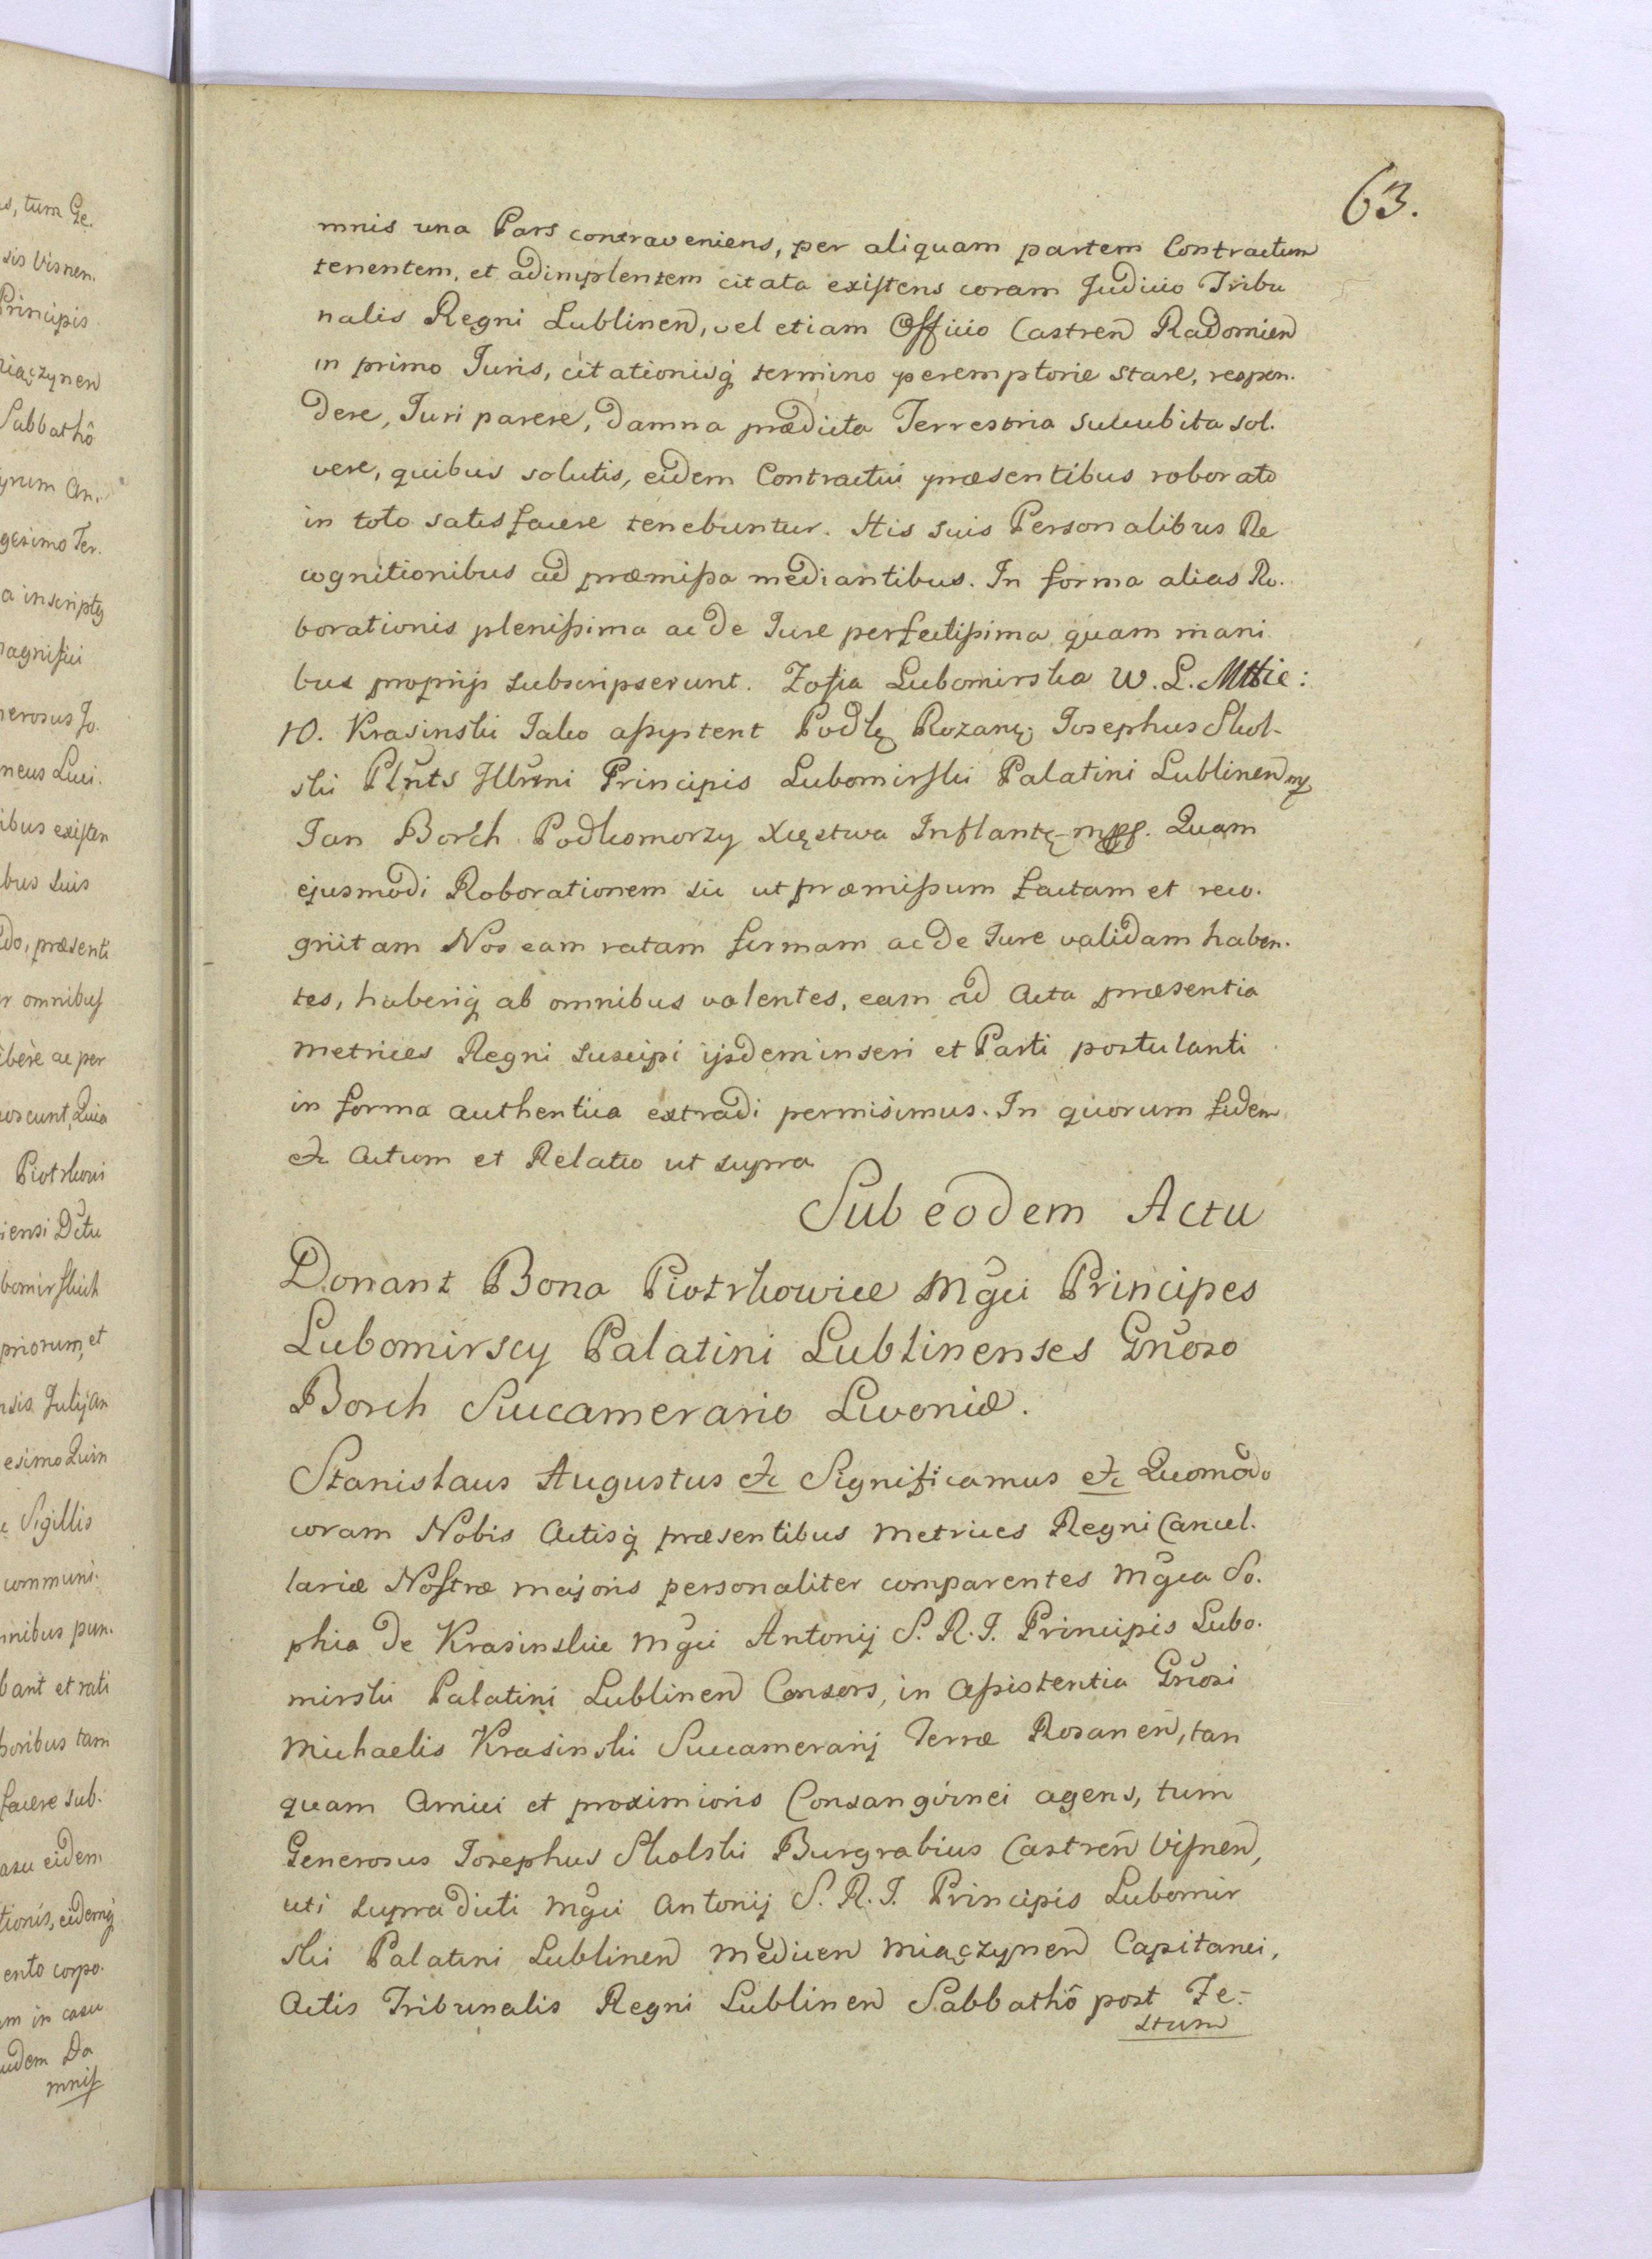 63.
mnis una Pars contraveniens, per aliquam partem Contractum
tenentem, et adimplentem citata existens coram Judicio Tribu
nalis Regni Lublinen, vel etiam Officio Castren Radomien
in primo Juris, citationisq termino peremptorie stare, respon.
dere, Juri parere, damna prædicta Terrestria succubita sol.
vere, quibus solutis, eidem Contractui præsentibus roborato
in toto satisfacere tenebuntur. His suis Personalibus Re
cognitionibus ad præmissa mediantibus. In forma alias Ro.
borationis plenissima ac de Jure perfectissima quam mani
bus proprijs subscripserunt. Zofia Lubomirska W. L.
Krasinski Jako assystent Podkę Rozanę, Josephus Skol-
ski Plnts Illmi Principis Lubomirski Palatini Lublinen mp
Jan Borch Podkomorzy Xięstwa Inflantę mpp. Quam
ejusmodi Roborationem sic ut præmissum factam et reco.
gnitam Nos eam ratam firmam ac de Jure validam haben.
tes, haberiq ab omnibus volentes, eam ad Acta præsentia
Metrices Regni suscipi ijsdem inseri et Parti postulanti
in forma authentica extradi permisimus. In quorum fidem
etc Actum et Relatio ut supra
Sub eodem Actu
Donant Bona Piotrkowice Mgci Principes
Lubomirscy Palatini Lublinenses Gnoso
Borch Succamerario Livoniæ.
Stanislaus Augustus etc Significamus etc Quomodo
coram Nobis Actisq præsentibus Metrices Regni Cancel.
lariæ Nostræ majoris personaliter comparentes Mgca So.
phia de Krasinskie Mgci Antonij S. R. I. Principis Lubo.
mirski Palatini Lublinen Consors, in assistentia Gnosi
Michaelis Krasinski Succamerarij Terræ Rosanen, tan
quam Amici et proximioris Consangvinei agens, tum
Generosus Josephus Skolski Burgrabius Castren Visnen,
uti supradicti Mgci Antonij S. R. I. Principis Lubomir
ski Palatini Lublinen Medicen Miączynen Capitanei,
Actis Tribunalis Regni Lublinen Sabbathô post Fe-
stum